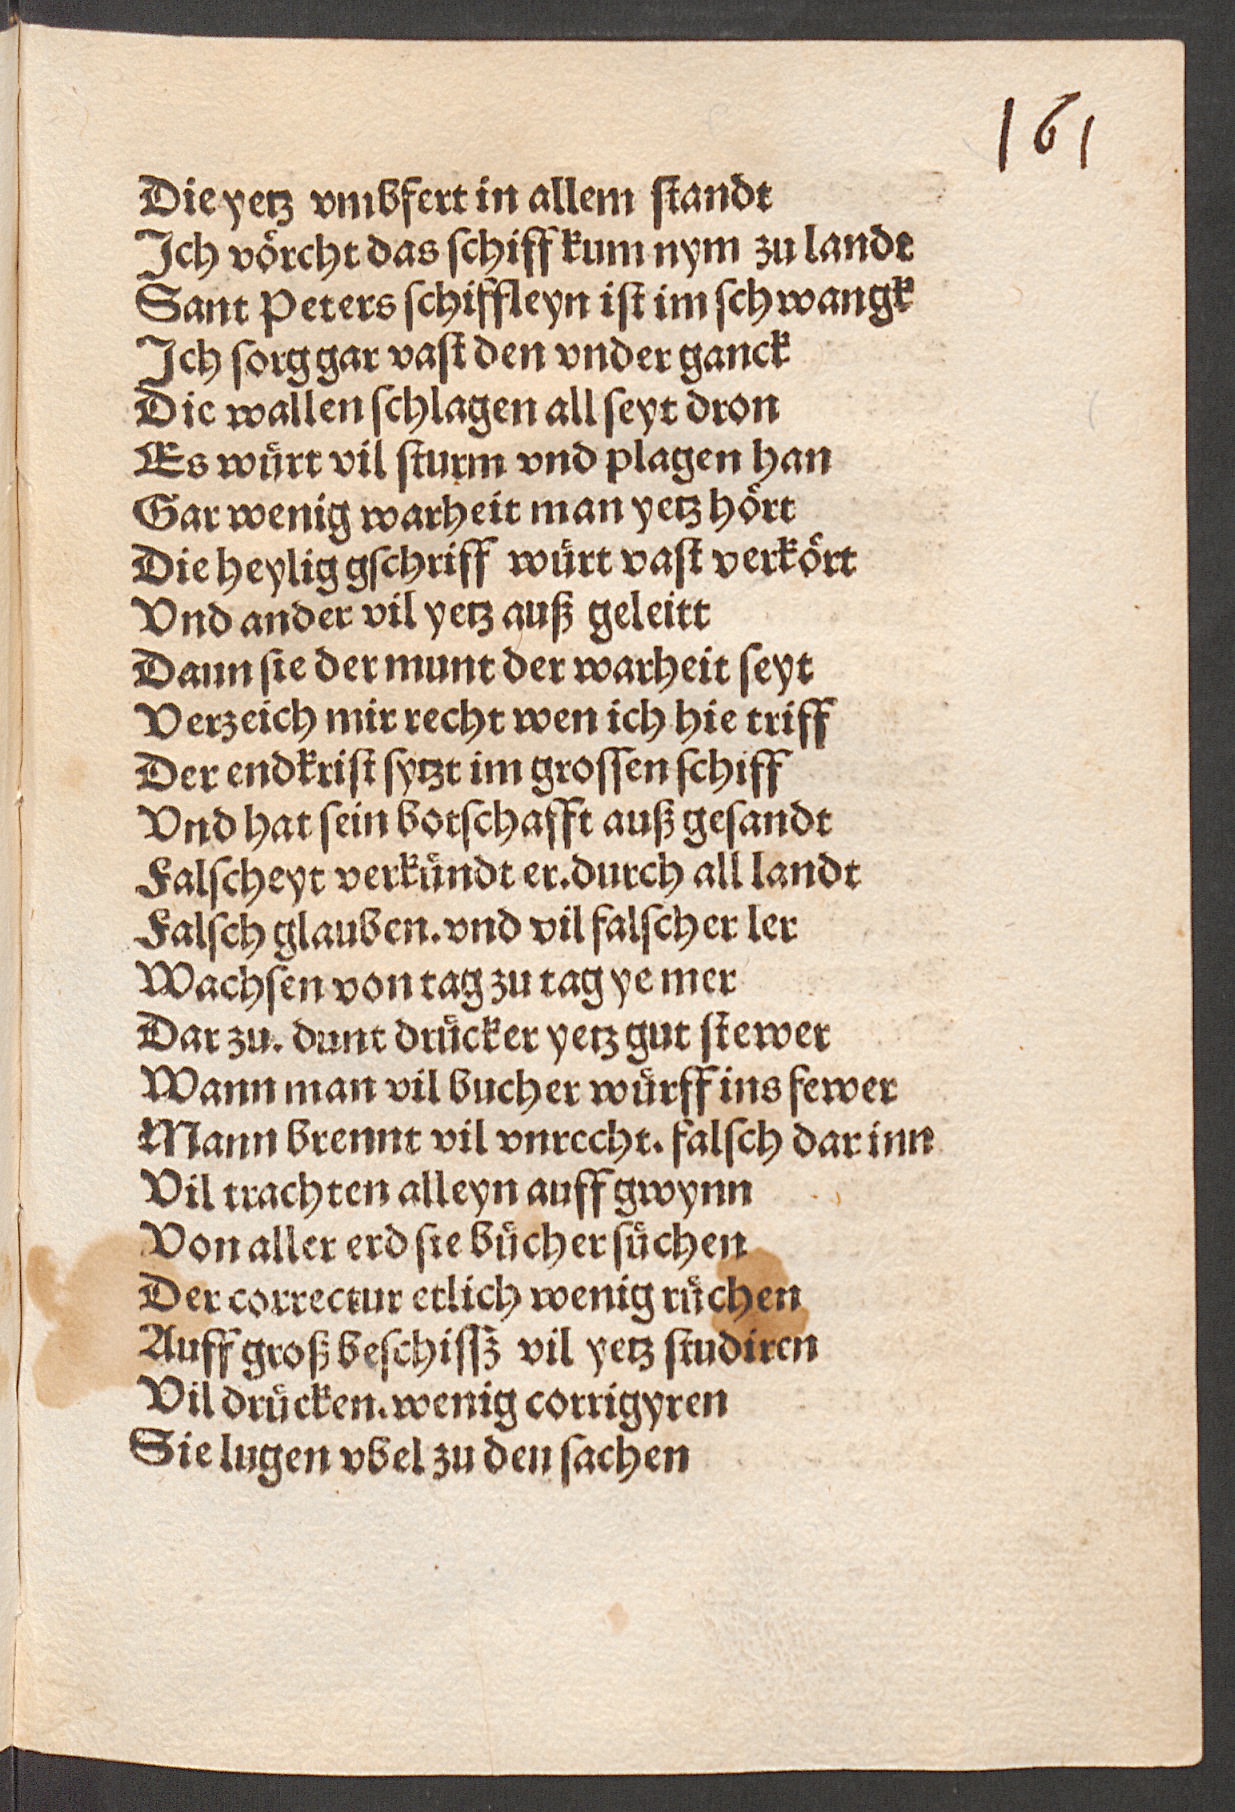 161
Die yetz vmbfert in allem ſtandt
Ich voͤrcht das ſchiff kum nym zu landt
Sant Peters ſchiffleyn iſt im ſchwangk
Ich ſorg gar vaſt den vnder ganck
Die wallen ſchlagen all ſeyt dron
Es wuͤrt vil ſturm vnd plagen han
Gar wenig warheit man yetz hoͤrt
Die heylig gſchriff wuͤrt vaſt verkoͤrt
Vnd ander vil yetz auß geleitt
Dann ſie der munt der warheit ſeyt
Verzeich mir recht wen ich hie triff
Der endkriſt ſytzt im groſſen ſchiff
Vnd hat ſein botſchafft auß geſandt
Falſcheyt verkuͤndt er. durch all landt
Falſch glauben. vnd vil falſcher ler
Wachſen von tag zu tag ye mer
Dar zu. dunt druͤcker yetz gut ſtewer
Wann man vil bucher wuͤrff ins fewer
Mann brennt vil vnrecht. falſch dar inn
Vil trachten alleyn auff gwynn
Von aller erd ſie buͤcher ſuͤchen
Der correctur etlich wenig ruͤchen
Auff groß beſchiſſz vil yetz ſtudiren
Vil druͤcken. wenig corrigyren
Sie lugen vbel zu den ſachen